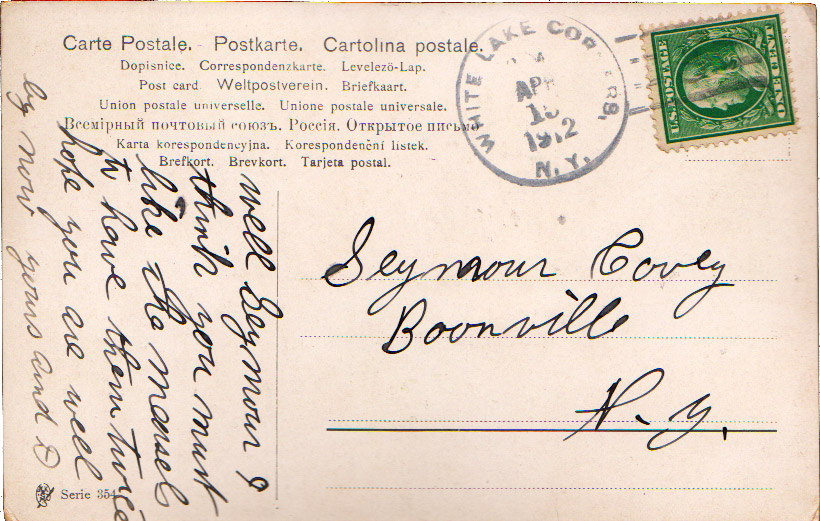 Carte Postale. - Postkarte. Cartolina postale.
Dopisnice. Correspondenzkarte. Levelezö-Lap.
Post card Weltpostverein. Briefkaart.
Union postale universelle. Unione postale universale.
Всемірный почтовый союзъ. Россія. Открытое письмо
Karta korespondencyjna. Korespondenční lístek.
Brefkort. Brevkort. Tarjeta postal.
WHITE LAKE CORNERS,
APR
1912
N.Y.
U.S. POSTAGE
Seymour Covey
Boonville
N. Y.
well Seymour I
think you must
like the measels
to have them twice
hope you are well
by now yours and
Serie 354